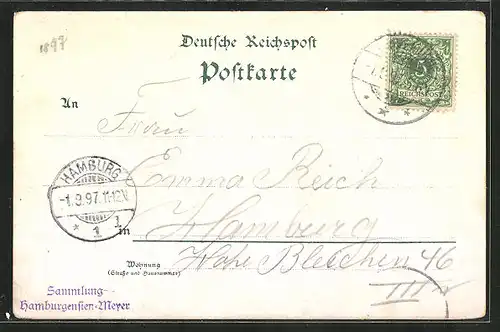 1897
Deutsche Reichspost
Postkarte
REICHSPOST
An
Frau
HAMBURG
-1.9.97.11-12V
* 1 1
Emma Reich
in Hamburg
Wohnung
(Straße und Hausnummer)
Hohe Bleichen 46
III
Sammlung
Hamburgensien-Meyer